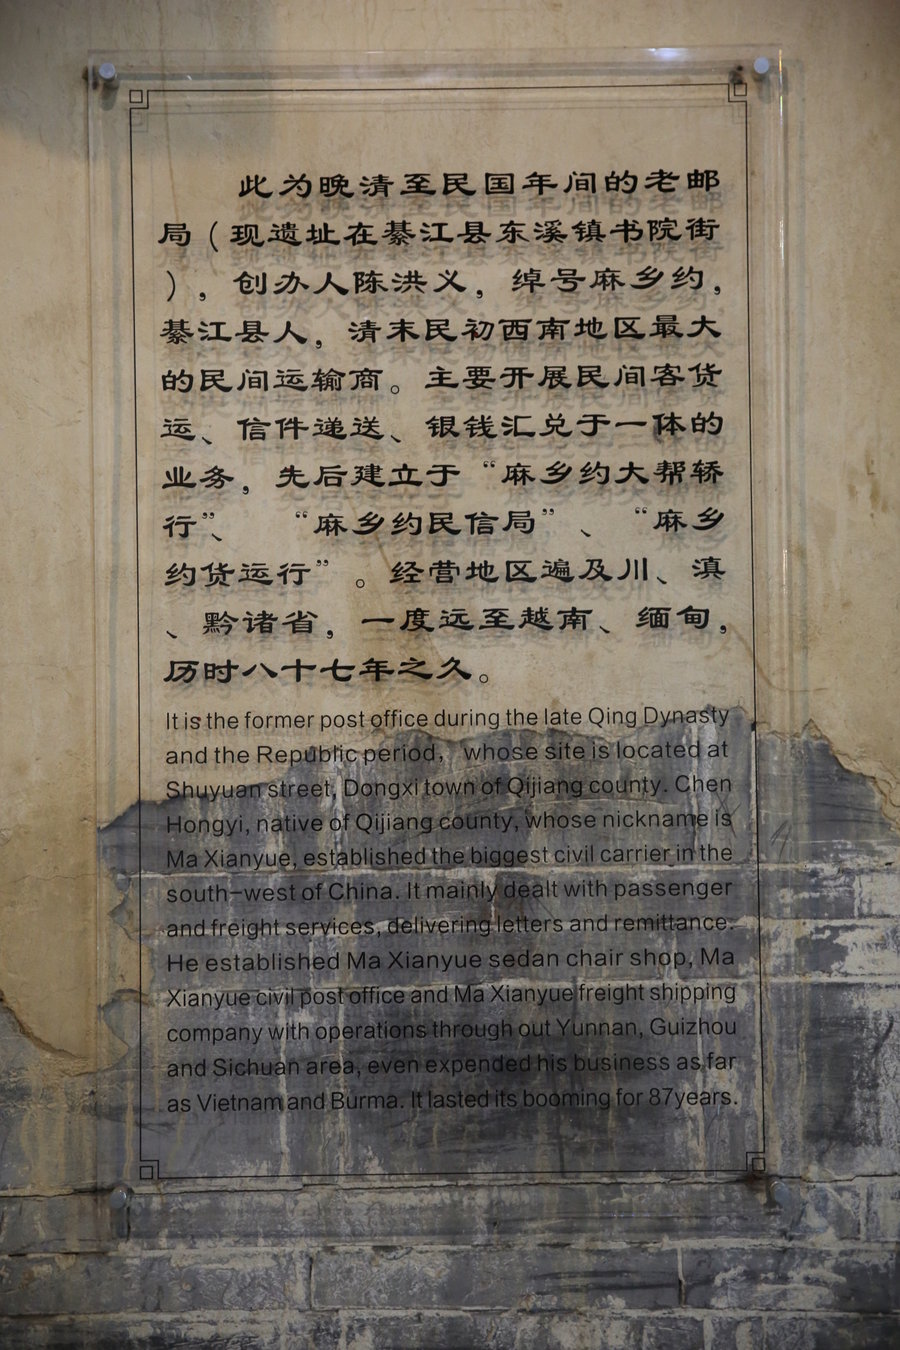 此为晚清至民国年间的老邮
局（现遗址在綦江县东溪镇书院街
），创办人陈洪义，绰号麻乡约，
綦江县人，清末民初西南地区最大
的民间运输商。主要开展民间客货
运、信件递送、银钱汇兑于一体的
业务，先后建立于“麻乡约大帮轿
行”、“麻乡约民信局”、“麻乡
约货运行”。经营地区遍及川、滇
、黔诸省，一度远至越南、缅甸，
历时八十七年之久。
It is the former post office during the late Qing Dynasty
and the Republic period， whose site is located at
Shuyuan street, Dongxi town of Qijiang county. Chen
Hongyi, native of Qijiang county, whose nickname is
Ma Xianyue, established the biggest civil carrier in the
south-west of China. It mainly dealt with passenger
and freight services, delivering letters and remittance.
He established Ma Xianyue sedan chair shop, Ma
Xianyue civil post office and Ma Xianyue freight shipping
company with operations through out Yunnan, Guizhou
and Sichuan area, even expended his business as far
as Vietnam and Burma. It lasted its booming for 87years.